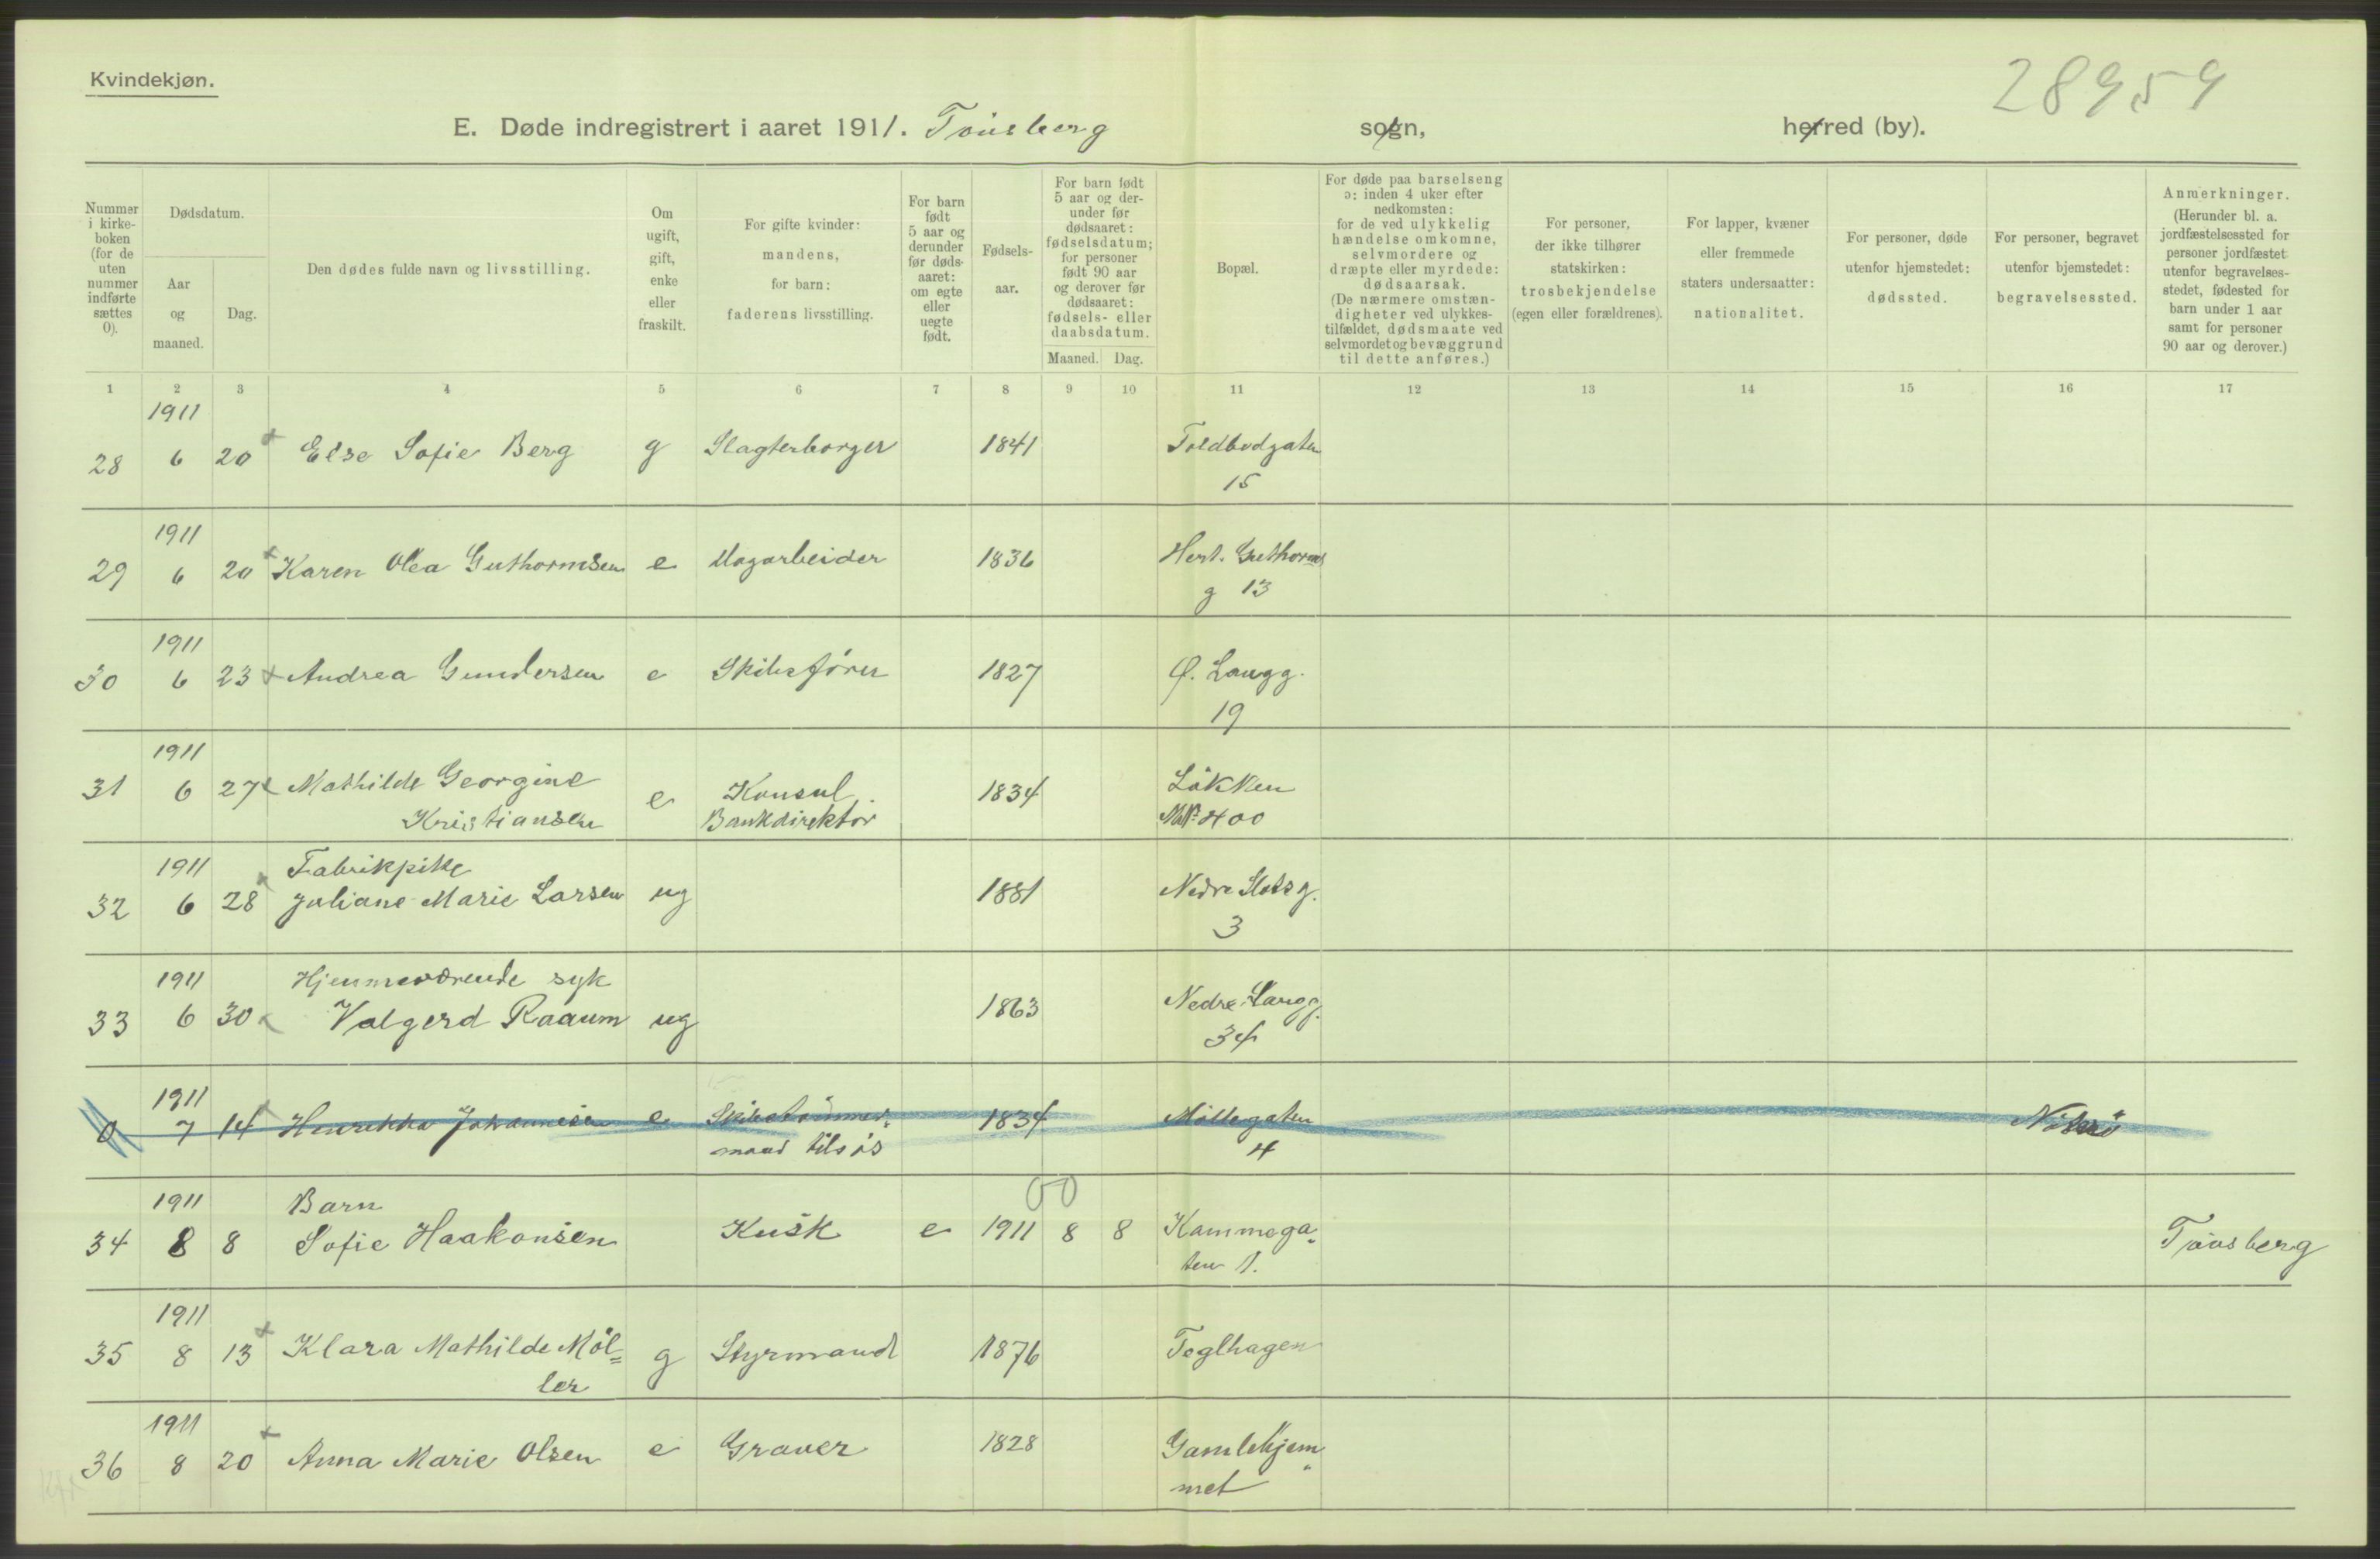 Kvindekjøn.
28959
E. Døde indregistrert i aaret 1911. Tønsberg sogn, herred (by).
Nummer i kirkeboken (for de uten nummer indførte sættes 0).
Dødsdatum.
Aar og maaned.
Dag.
Den dødes fulde navn og livsstilling.
Om ugift, gift, enke eller fraskilt.
For gifte kvinder: mandens, for barn: faderens livsstilling.
For barn født 5 aar og derunder før dødsaaret: om egte eller uegte født.
Fødselsaar.
For barn født 5 aar og derunder før dødsaaret: fødselsdatum; for personer født 90 aar og derover før dødsaaret: fødsels- eller daabsdatum.
Maaned. Dag.
Bopæl.
For døde paa barselseng ɔ: inden 4 uker efter nedkomsten: for de ved ulykkelig hændelse omkomne, selvmordere og dræpte eller myrdede: dødsaarsak. (De nærmere omstændigheter ved ulykkestilfældet, dødsmaate ved selvmordet og bevæggrund til dette anføres.)
For personer, der ikke tilhører statskirken: trosbekjendelse (egen eller forældrenes).
For lapper, kvæner eller fremmede staters undersaatter: nationalitet.
For personer, døde utenfor hjemstedet: dødssted.
For personer, begravet utenfor hjemstedet: begravelsessted.
Anmerkninger. (Herunder bl. a. jordfæstelsessted for personer jordfæstet utenfor begravelsesstedet, fødested for barn under 1 aar samt for personer 90 aar og derover.)
1 2 3 4 5 6 7 8 9 10 11 12 13 14 15 16 17
1911
28 6 20 Else Sofie Berg g Slagterborger 1841 Toldbodgaten
15
1911
29 6 20 Karen Olea Guthormsen e Hagarbeider 1836 Hert. Guthorms
g 13
1911
30 6 23 Andrea Gundersen e Skibsfører 1827 Ø. Langg.
19
1911
31 6 27 Mathilde Georgine e Konsul 1834 Løkken
Kristiansen Bankdirektør MNo 400
1911 Fabrikpike
32 6 28 Juliane Marie Larsen ug 1881 Nedre Slotsg.
3
1911 Hjemmeværende syk
33 6 30 Valgerd Raaum ug 1863 Nedre Langg.
34
1911
0 7 14 Henrikka Johannesen e Skibstømmer- 1834 Møllegaten Nøterø
mand tilsjøs 4
1911 Barn 00
34 8 8 Sofie Haakonsen Kusk e 1911 8 8 Kammega- Tønsberg
ten 1.
1911
35 8 13 Klara Mathilde Møl= g Styrmand 1876 Teglhagen
ler
1911
36 8 20 Anna Marie Olsen e Graver 1828 Gamlehjem-
met